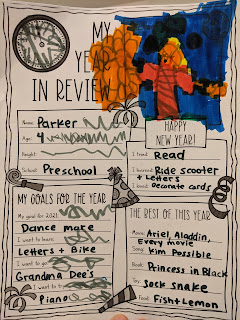 MY
YEAR
IN REVIEW
Name: Parker
Age: 4
Height:
School: Preschool
HAPPY
NEW YEAR!
I tried: Read
I learned: Ride scooter
+ Letters
I loved: Decorate cards
MY GOALS FOR THE YEAR
My goal for 2021:
Dance more
I want to learn:
Letters + Bike
I want to go:
Grandma Dee's
I want to try:
Piano
THE BEST OF THIS YEAR
Movie: Ariel, Aladdin,
Every movie
Song: Kim Possible
Book: Princess in Black
Toy: Sock snake
Food: Fish + Lemon